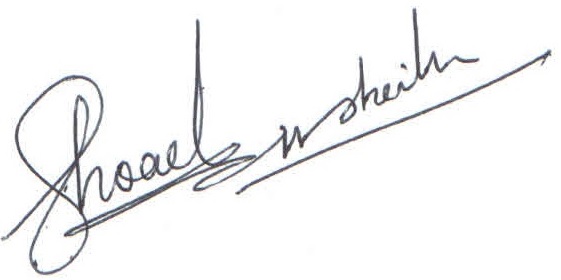 Shoaeb Sheikh